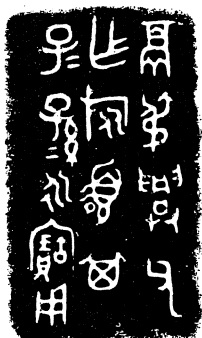 鬲弔興父
乍旅盨其
子＝孫＝永寶用